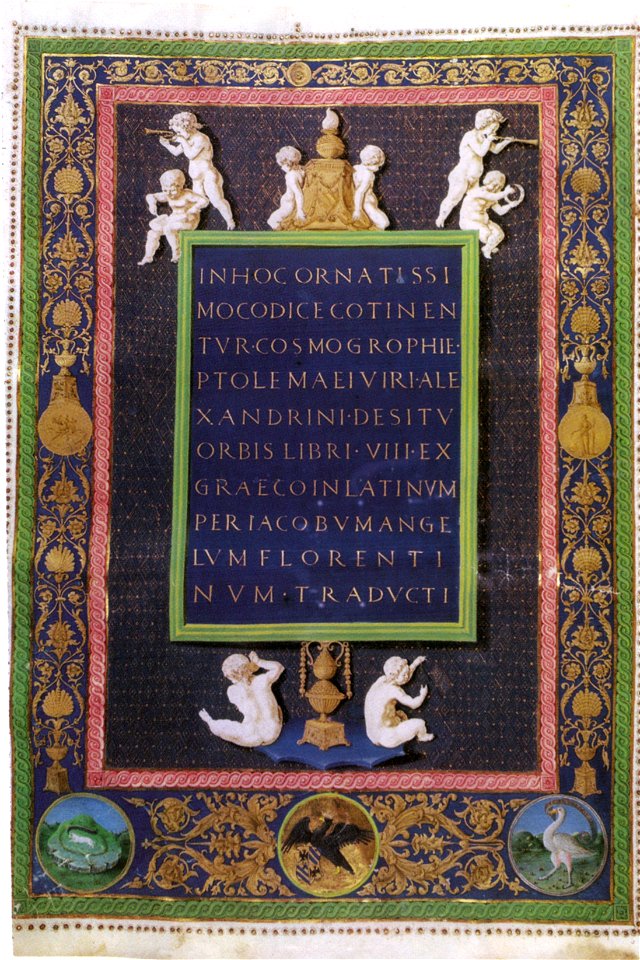 INHOC ORNATISSI
MOCODICE COTINEN
TVR·COSMOGROPHIE·
PTOLEMAEI VIRI·ALE
XANDRINI·DESITV
ORBIS LIBRI·VIII·EX
GRAECOINLATINVM
PERIACOBVMANGE
LVMFLORENTI
NVM·TRADVCTI